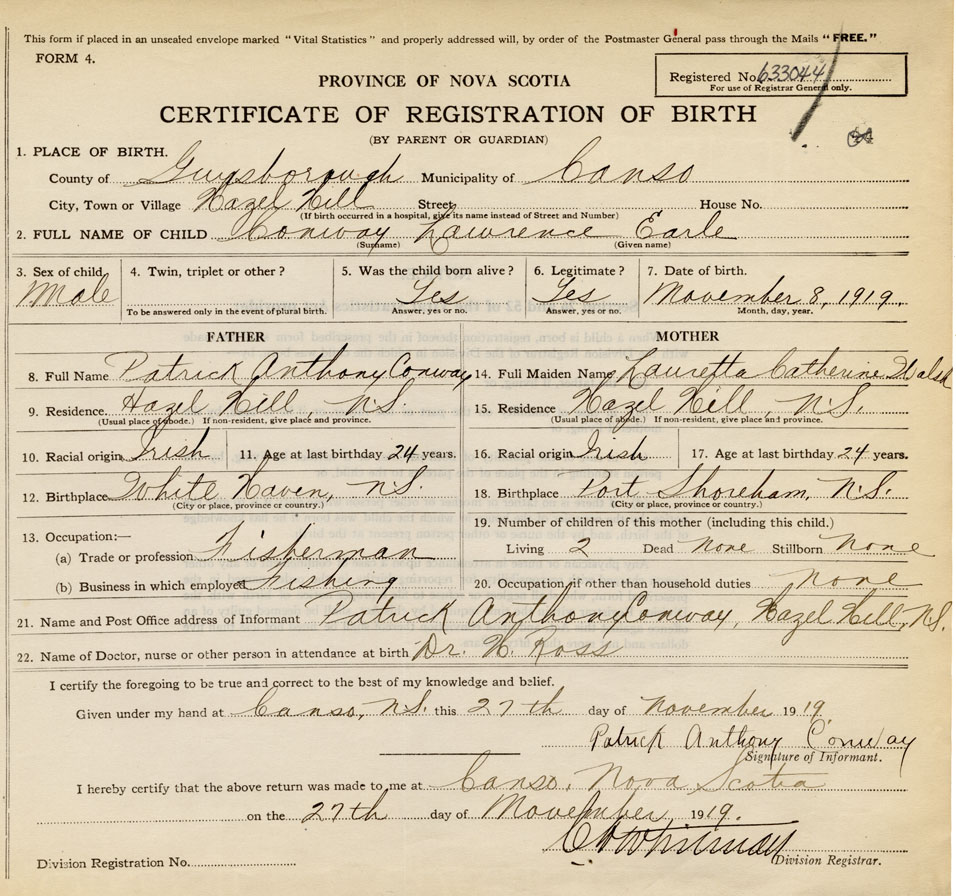 This form if placed in an unsealed envelope marked "Vital Statistics" and properly addressed will, by order of the Postmaster General pass through the Mails "FREE."
FORM 4.
Registered No. 633044
For use of Registrar General only.
PROVINCE OF NOVA SCOTIA
CERTIFICATE OF REGISTRATION OF BIRTH
(BY PARENT OR GUARDIAN)
1. PLACE OF BIRTH.
County of Guysborough Municipality of Canso
City, Town or Village Hazel Hill Street House No.
(If birth occurred in a hospital, give its name instead of Street and Number)
2. FULL NAME OF CHILD Conway Lawrence Earle
(Surname) (Given name)
3. Sex of child 4. Twin, triplet or other? 5. Was the child born alive? 6. Legitimate? 7. Date of birth.
Male Yes Yes November 8, 1919.
To be answered only in the event of plural birth. Answer, yes or no. Answer, yes or no. Month, day, year.
FATHER MOTHER
8. Full Name Patrick Anthony Conway 14. Full Maiden Name Lauretta Catherine Walsh
9. Residence. Hazel Hill, N.S. 15. Residence Hazel Hill, N.S.
(Usual place of abode.) If non-resident, give place and province. (Usual place of abode.) If non-resident, give place and province.
10. Racial origin Irish 11. Age at last birthday 24 years. 16. Racial origin Irish 17. Age at last birthday 24 years.
12. Birthplace White Haven, N.S. 18. Birthplace Port Shoreham, N.S.
(City or place, province or country.) (City or place, province or country.)
13. Occupation:— 19. Number of children of this mother (including this child.)
(a) Trade or profession Fisherman Living 2 Dead None Stillborn None
(b) Business in which employed Fishing 20. Occupation, if other than household duties. None
21. Name and Post Office address of Informant Patrick Anthony Conway, Hazel Hill, N.S.
22. Name of Doctor, nurse or other person in attendance at birth Dr. H. Ross
I certify the foregoing to be true and correct to the best of my knowledge and belief.
Given under my hand at Canso, N.S. this 27th day of November 1919.
Patrick Anthony Conway
Signature of Informant.
I hereby certify that the above return was made to me at Canso, Nova Scotia
on the 27th day of November, 1919.
Whitman
Division Registration No. Division Registrar.